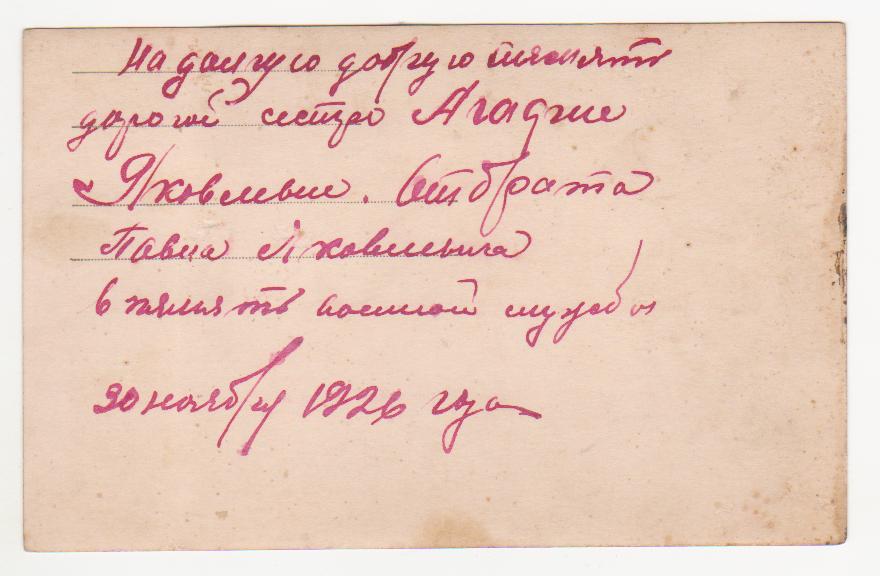 На долгую добрую память
дорогой сестре Агафие
Яковлевне. От брата
Павла Яковлевича
в память военной службы
30 ноября 1926 года